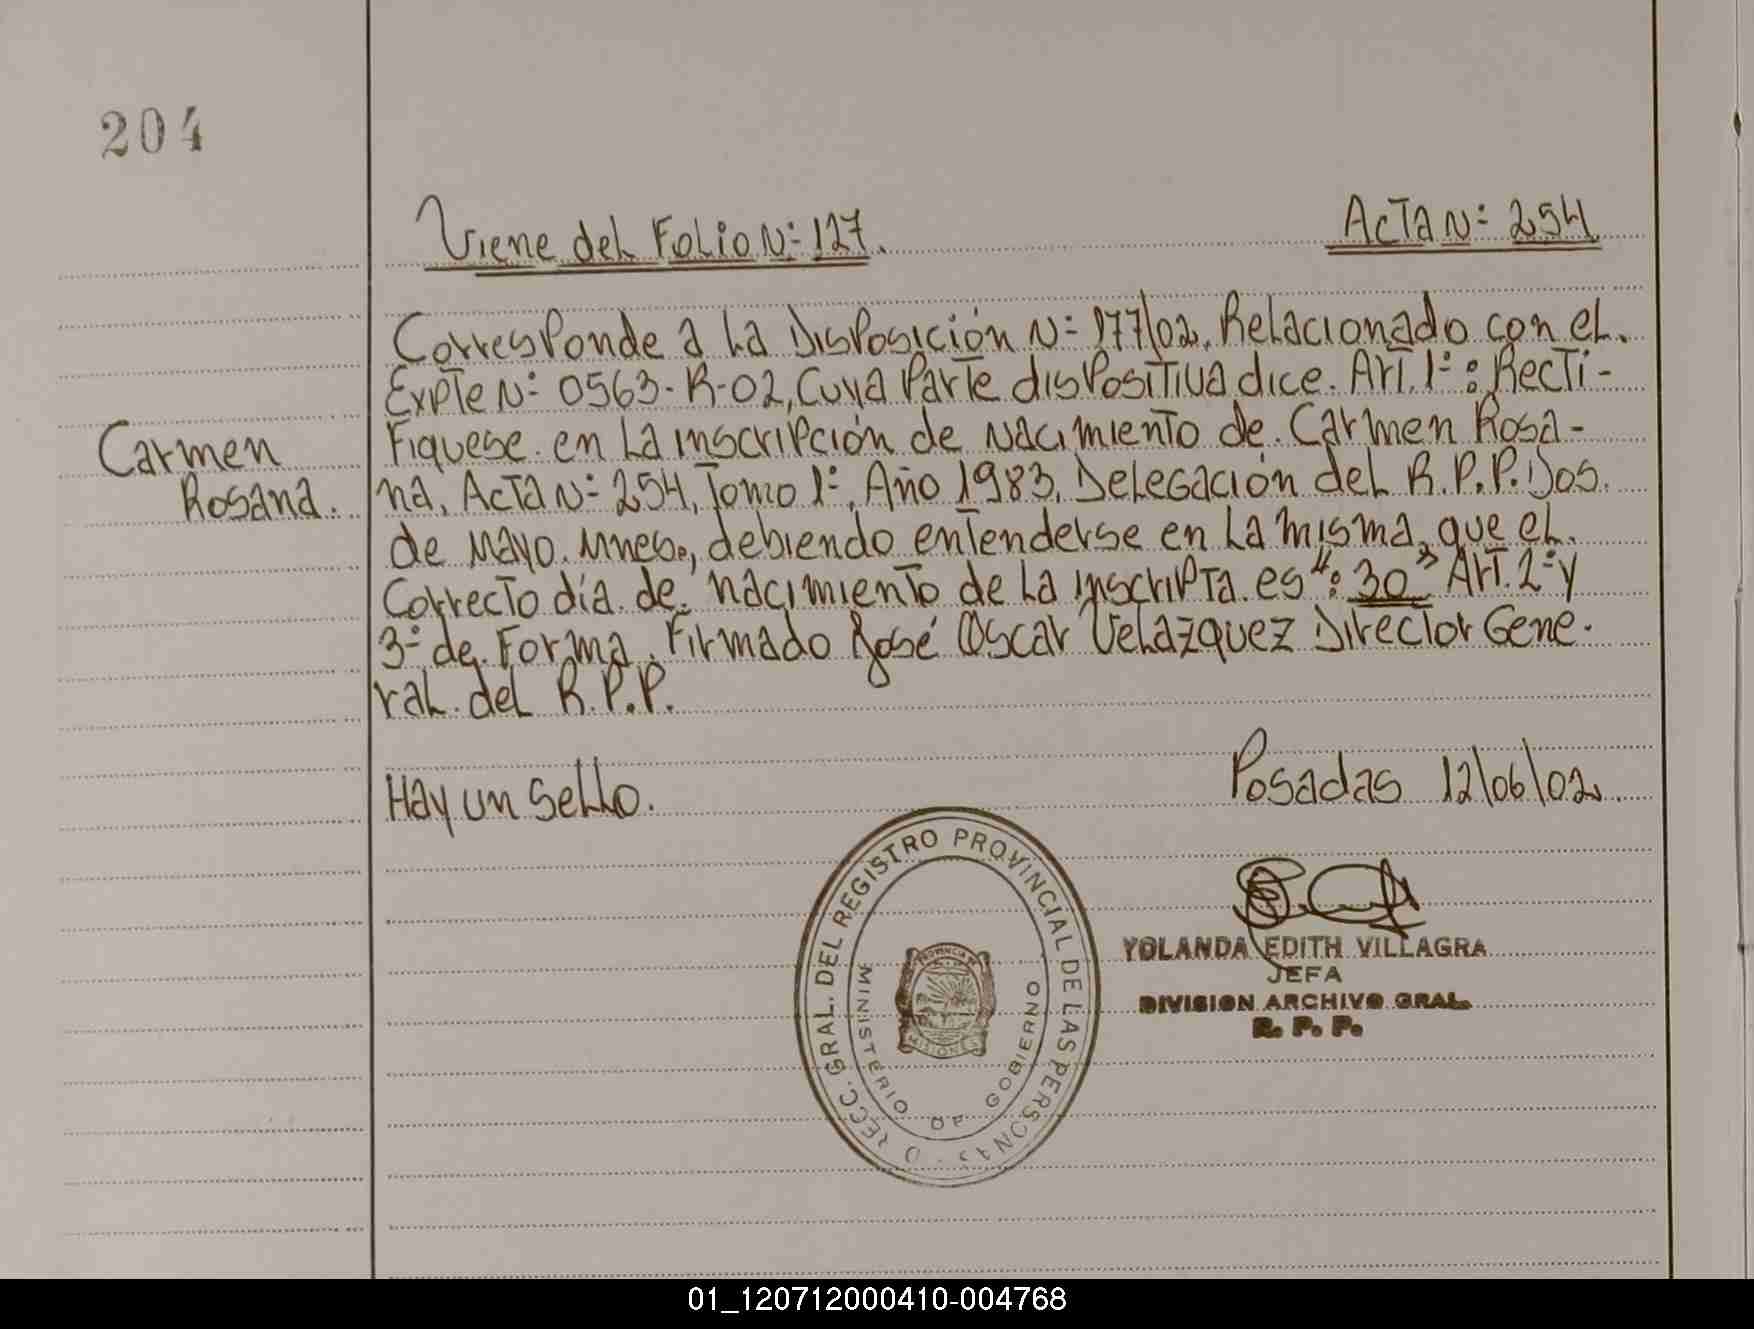 204
Viene del Folio N: 127.
Acta N: 254
Corresponde a la Disposición N: 177/02, Relacionado con el.
Expte N: 0563-R-02, Cuya Parte dispositiva dice. Art. 1º: Recti-
Carmen
fiquese en la inscripción de nacimiento de Carmen Rosa-
Rosana.
na, Acta N: 254, Tomo 1º, Año 1983, Delegación del R.P.P. Dos.
de Mayo. Mnes., debiendo entenderse en la misma, que el.
Correcto día de nacimiento de la inscripta es ": 30" Art. 2º y
3º de Forma. Firmado José Oscar Velazquez Director Gene-
ral del R.P.P.
Hay un Sello.
Posadas 12/06/02.
DIRECC. GRAL. DEL REGISTRO PROVINCIAL DE LAS PERSONAS
MINISTERIO DE GOBIERNO
PROVINCIA DE
MISIONES
YOLANDA EDITH VILLAGRA
JEFA
DIVISION ARCHIVO GRAL.
R. P. P.
01_120712000410-004768